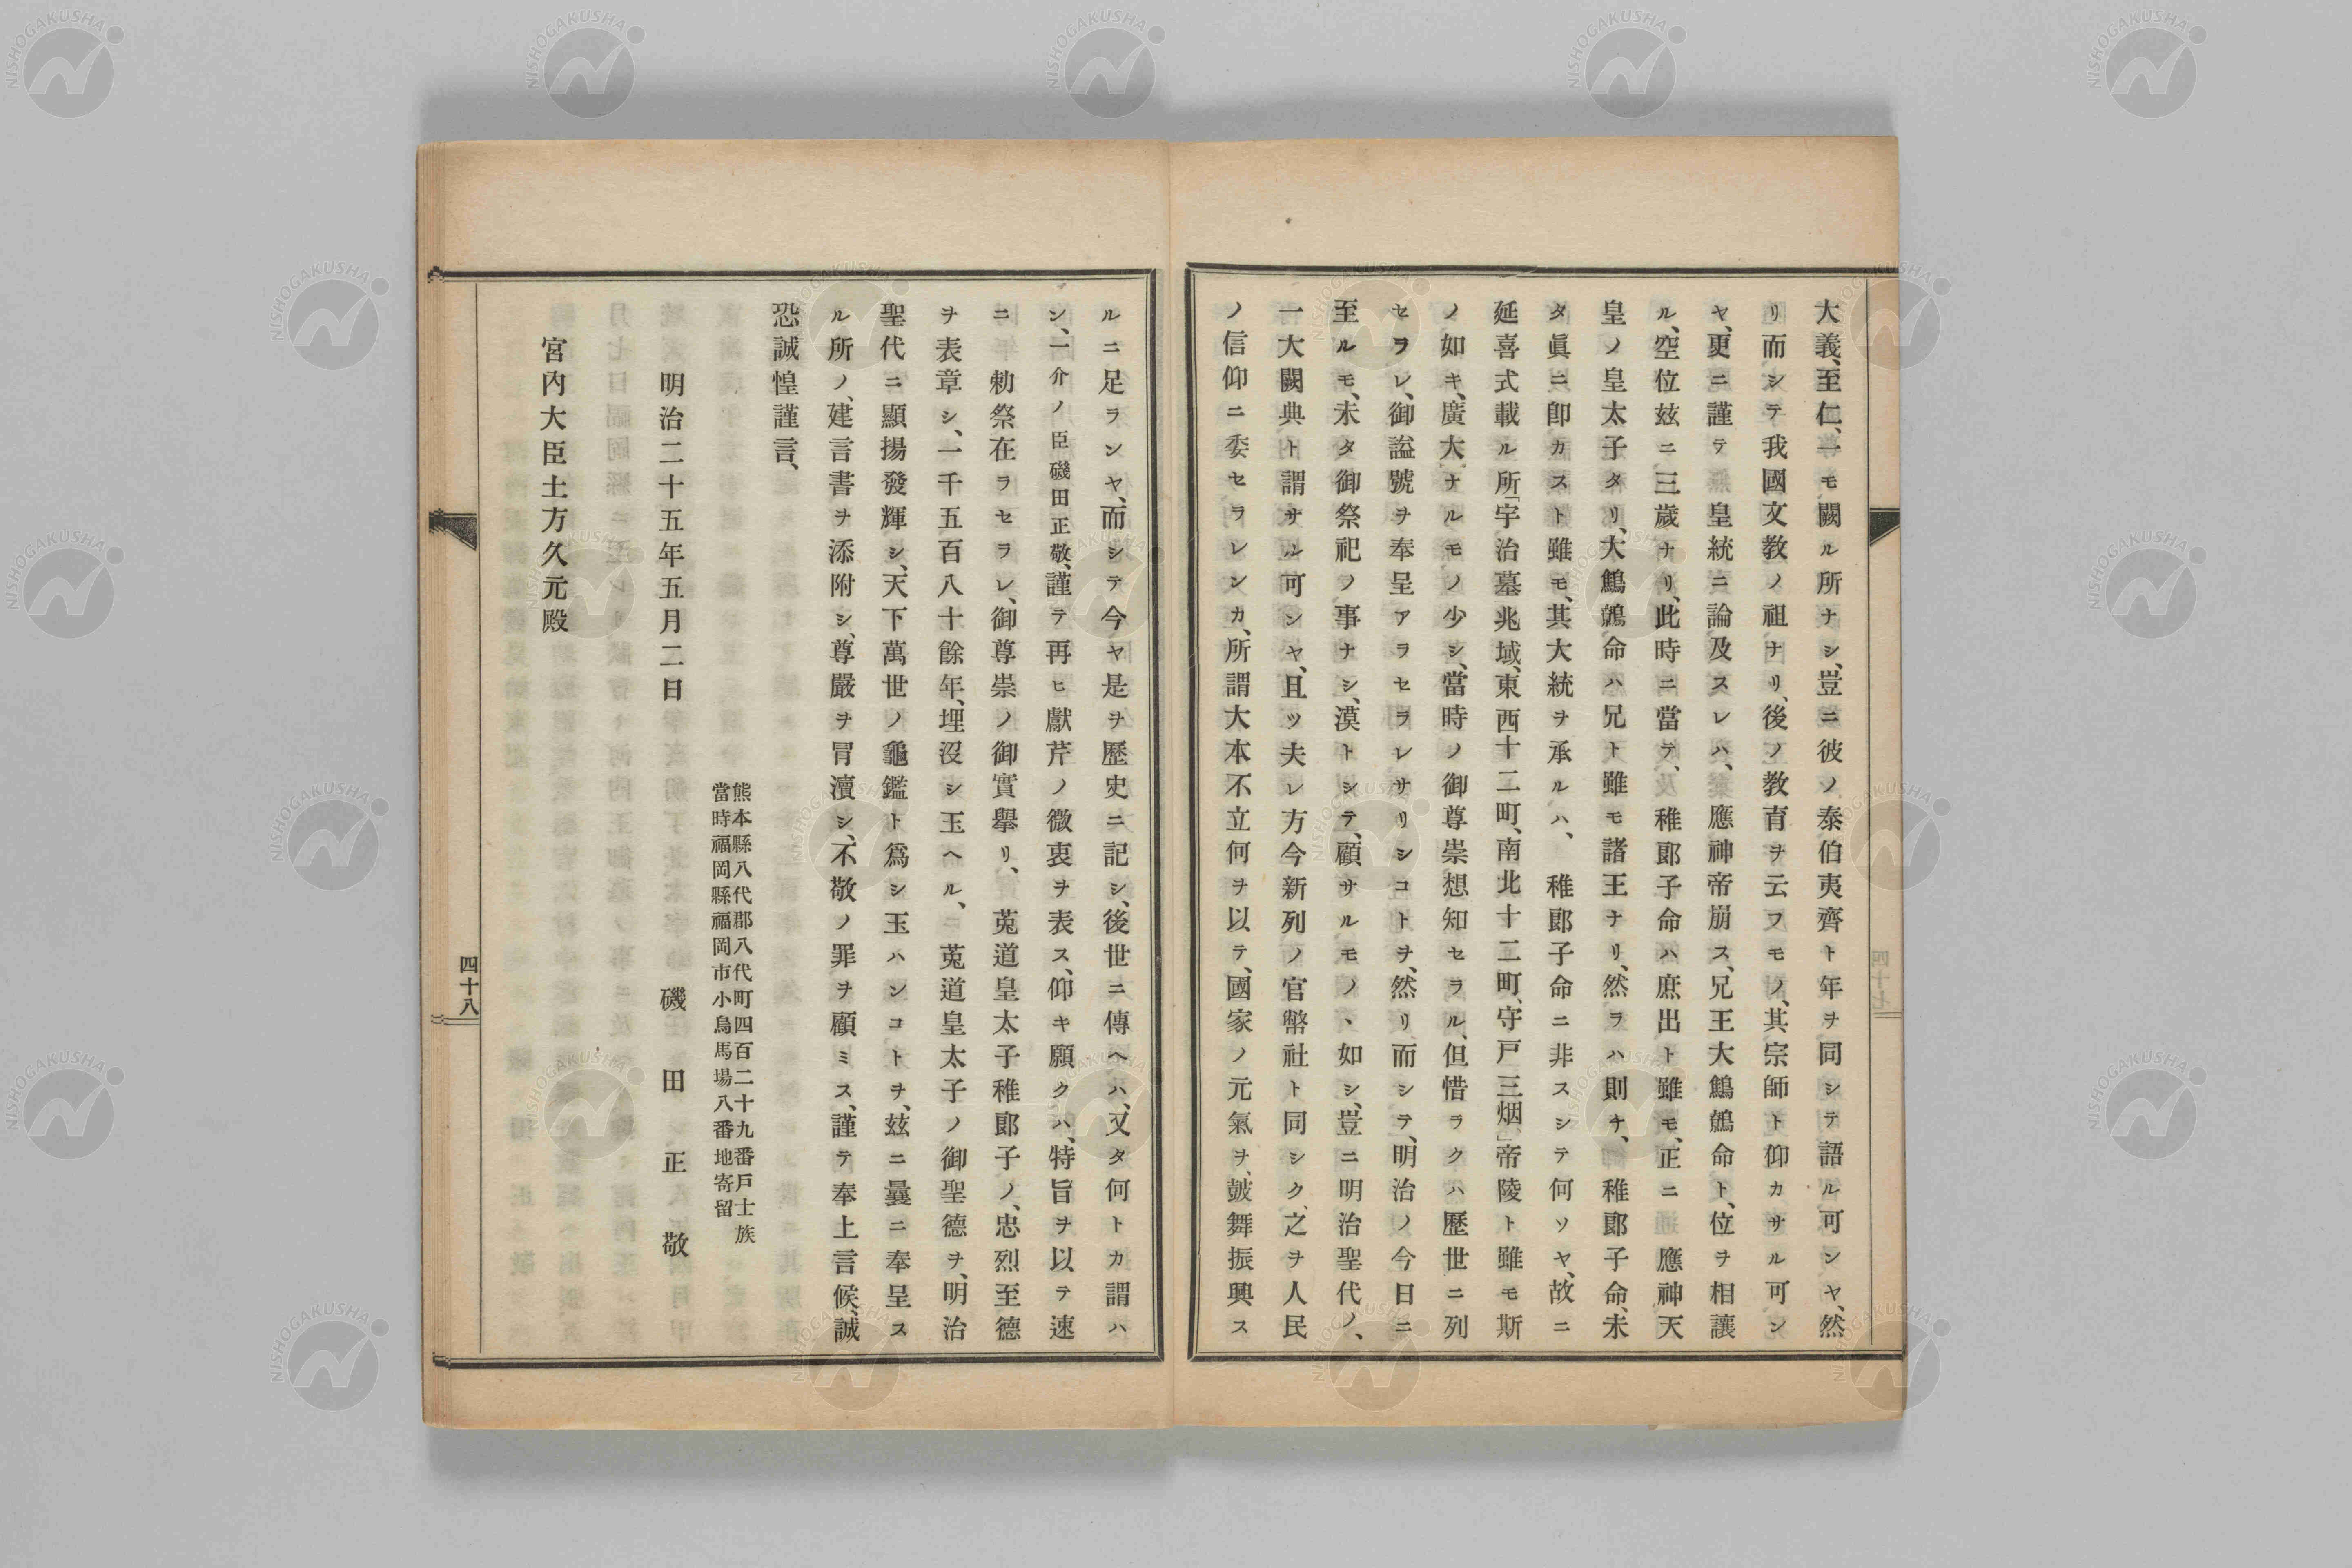 大義、至仁、一モ闕ル所ナシ、豈ニ彼ノ泰伯夷齊ト年ヲ同シテ語ル可ンヤ、然
リ而シテ我國文教ノ祖ナリ、後ノ教育ヲ云フモノ、其宗師ト仰カサル可ン
ヤ、更ニ謹テ皇統ニ論及スレハ、應神帝崩ス、兄王大鷦鷯命ト、位ヲ相讓
ル、空位玆ニ三歲ナリ、此時ニ當テ、稚郎子命ハ庶出ト雖モ、正ニ應神天
皇ノ皇太子タリ、大鷦鷯命ハ兄ト雖モ諸王ナリ、然ラハ則チ、稚郎子命、未
タ眞ニ卽カスト雖モ、其大統ヲ承ルハ、稚郎子命ニ非スシテ何ソヤ、故ニ
延喜式載ル所「宇治墓兆域、東西十二町、南北十二町、守戸三烟、」帝陵ト雖モ斯
ノ如キ、廣大ナルモノ少シ、當時ノ御尊崇想知セラル、但惜ラクハ歷世ニ列
セラレ、御謚號ヲ奉呈アラセラレサリシコトヲ、然リ而シテ、明治ノ今日ニ
至ルモ、未タ御祭祀ノ事ナシ、漠トシテ、顧サルモノヽ如シ、豈ニ明治聖代ノ、
一大闕典ト謂サル可ンヤ、且ツ夫レ方今新列ノ官幣社ト同シク、之ヲ人民
ノ信仰ニ委セラレンカ、所謂大本不立何ヲ以テ、國家ノ元氣ヲ、皷舞振興ス
ルニ足ランヤ、而シテ今ヤ是ヲ歷史ニ記シ、後世ニ傳ヘハ、又タ何トカ謂ハ
ン、一介ノ臣磯田正敬、謹テ再ヒ獻芹ノ微衷ヲ表ス、仰キ願クハ、特旨ヲ以テ速
ニ勅祭在ラセラレ、御尊崇ノ御實擧リ、菟道皇太子稚郎子ノ、忠烈至德
ヲ表章シ、一千五百八十餘年、埋沒シ玉ヘル、菟道皇太子ノ御聖德ヲ、明治
聖代ニ顯揚發輝シ、天下萬世ノ龜鑑ト爲シ玉ハンコトヲ、玆ニ曩ニ奉呈ス
ル所ノ、建言書ヲ添附シ、尊嚴ヲ冐瀆シ、不敬ノ罪ヲ顧ミス、謹テ奉上言候、誠
恐誠惶謹言、
熊本縣八代郡八代町四百二十九番戸士族
當時福岡縣福岡市小烏馬場八番地寄留
明治二十五年五月二日　磯田正敬
宮內大臣土方久元殿
四十八
四十七
NISHOGAKUSHA